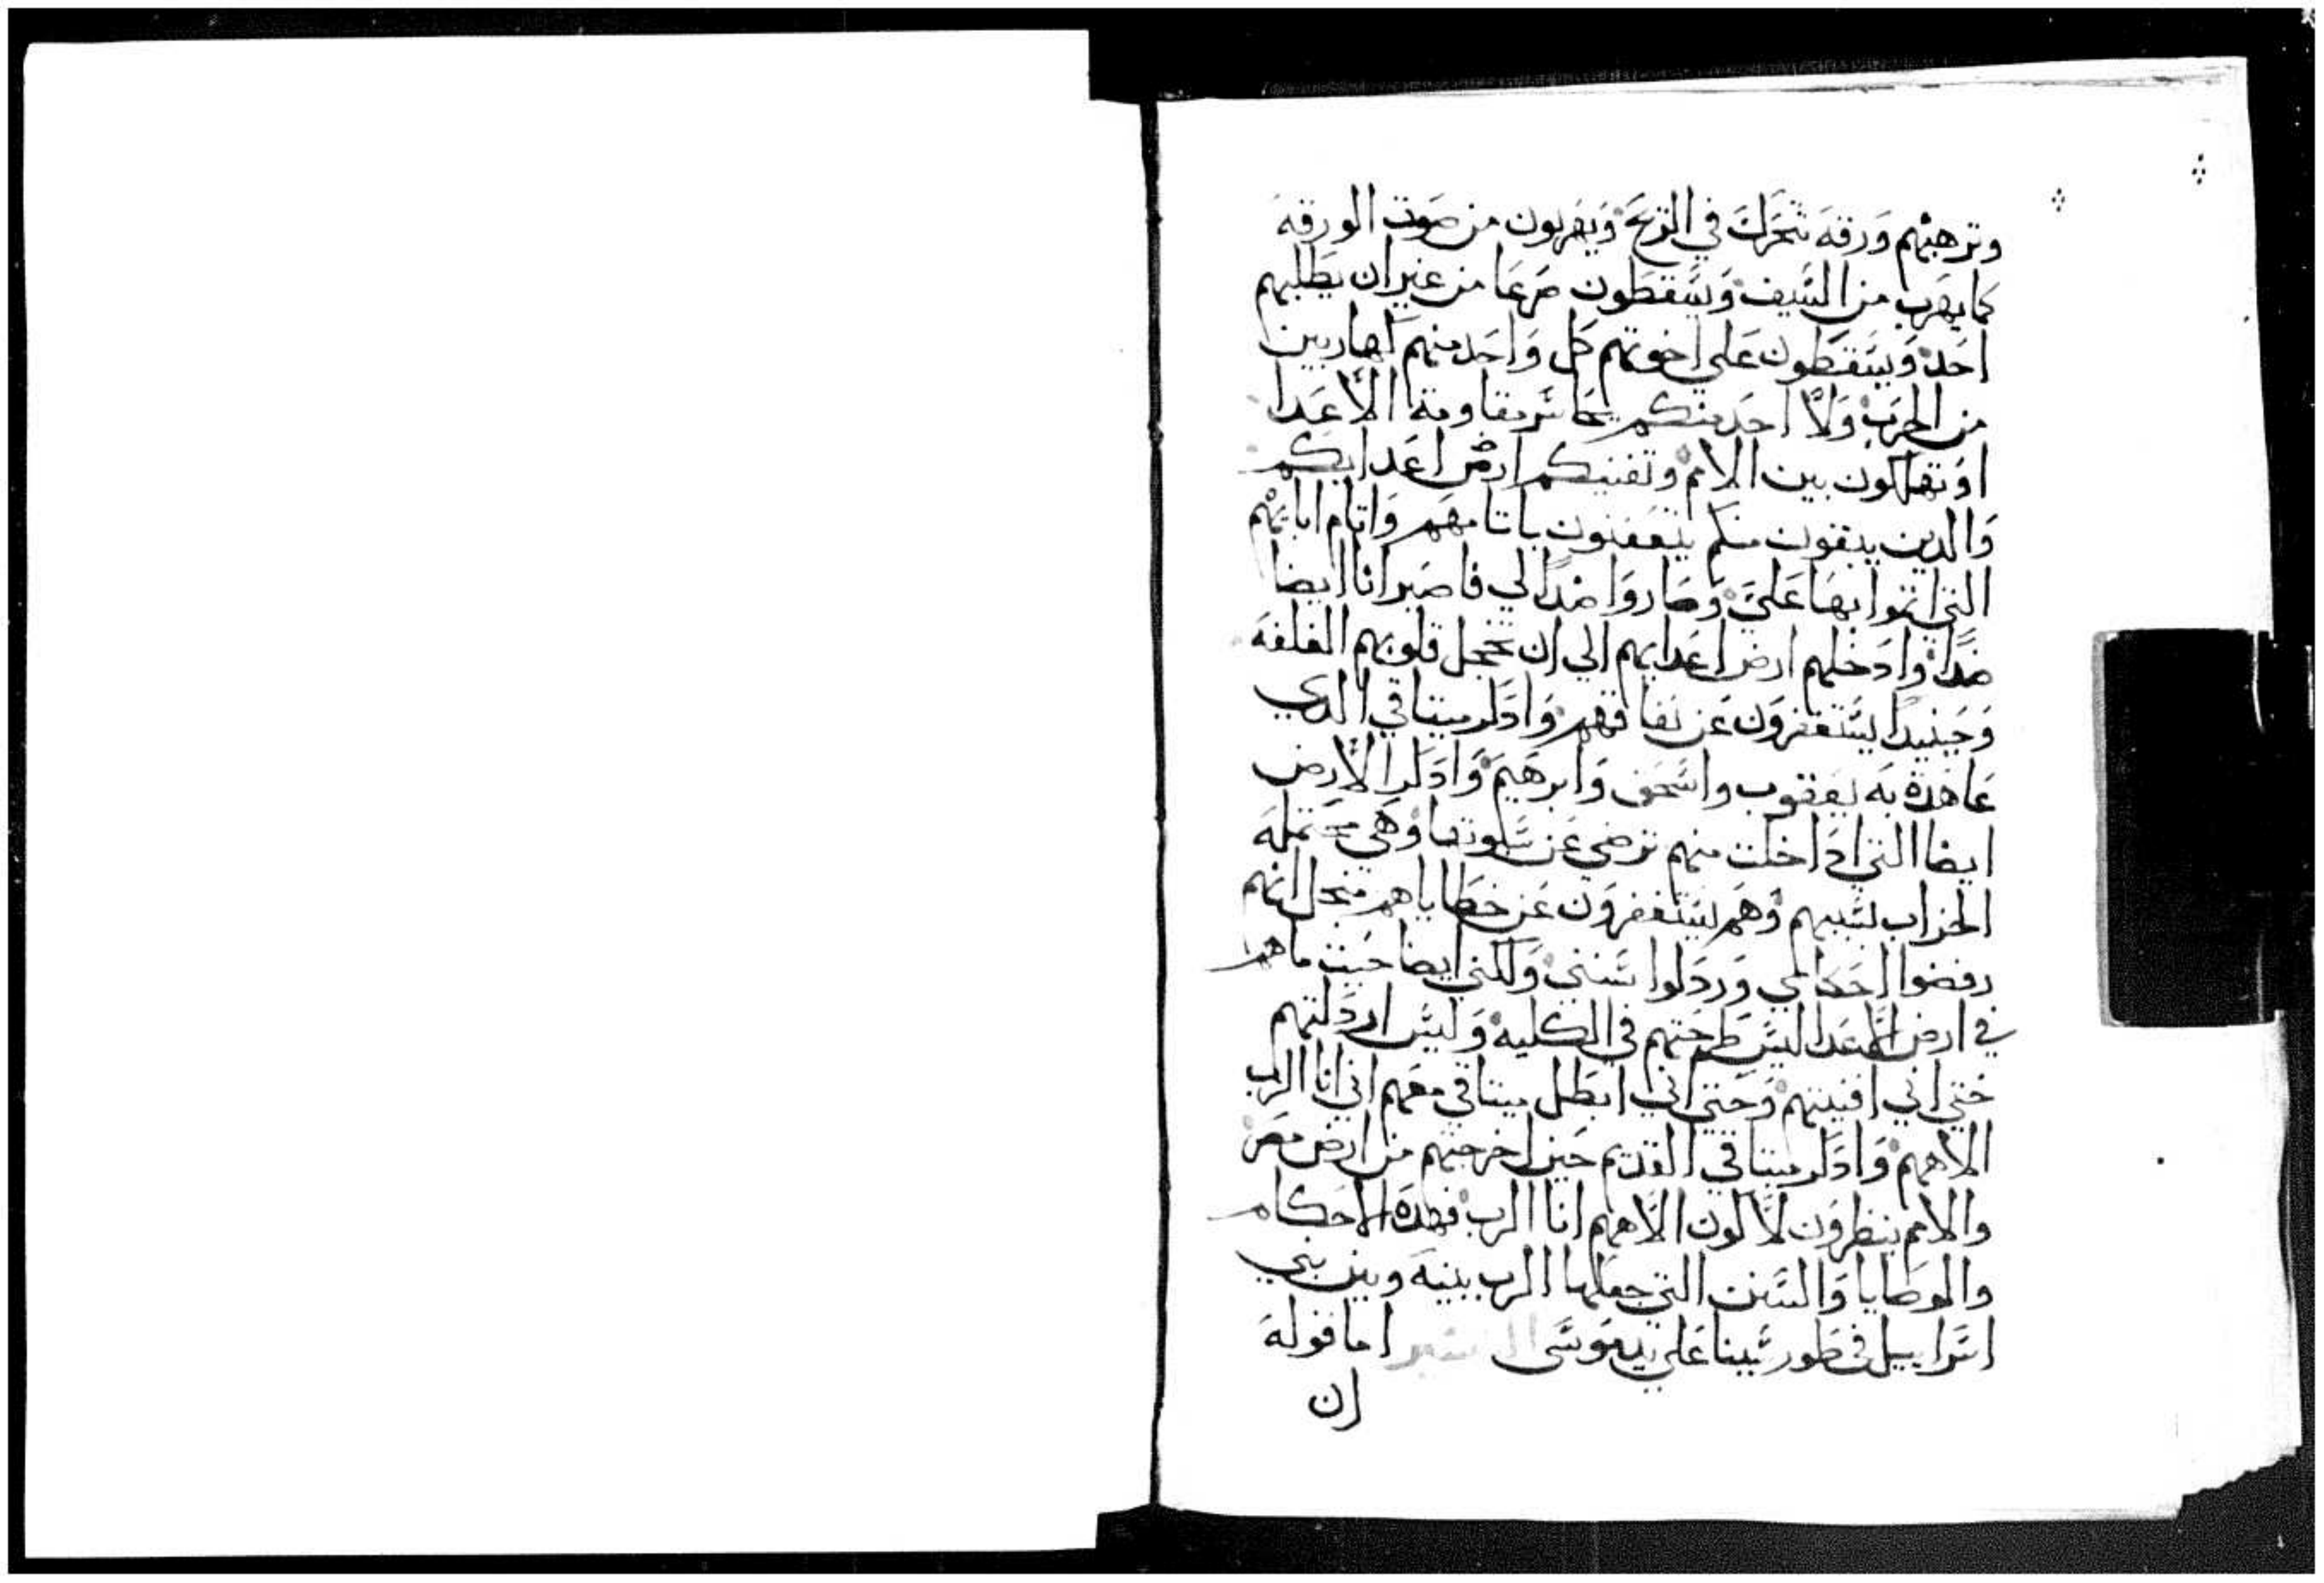 وترهبهم ورقه تتحرك في الريح ويهربون من صوت الورقه
كما يهرب من السيف ويسقطون صرعا من غير ان يطلبهم
احد ويسقطون علي اخوتهم كل واحد منهم كهاربين
من الحرب ولا احد منكم يحاسر مقاومة الاعدا
او تهلكون بين الامم وتفنيكم ارض اعدايكم
والدين يبقون منكم يتعفنون باتامهم واتام ابايهم
التي اتموا بها علي وصاروا ضدا لي فاصير انا ايضا
ضدا وادخلهم ارض اعدايهم الي ان تخجل قلوبهم الغلفه
وحينيدا يستغفرون عن نفاقهم وادكر ميتاقي الدي
عاهدة به يعقوب واسحق وابرهيم وادكر الارض
ايضا التي اداخلت منهم ترضي عن سبوتها وهي محتمله
الخراب لسببهم وهم يستغفرون عن خطاياهم منجل انهم
رفضوا احكامي وردلوا سنني ولكني ايضا حيت ما هم
في ارض الاعدا ليس طرحتهم في الكليه وليس اردلتهم
حتي اني افنيتهم وحتي اني ابطل ميتاقي معهم اني انا الرب
الاههم وادكر ميتاقي القديم حين اخرجتهم من ارض مصر
والامم ينظرون لاكون الاههم انا الرب فهده الاحكام
والوصايا والسنن التي جعلها الرب بينه وبين بني
اسراييل في طور سينا علي يد موسي اما قوله
ان